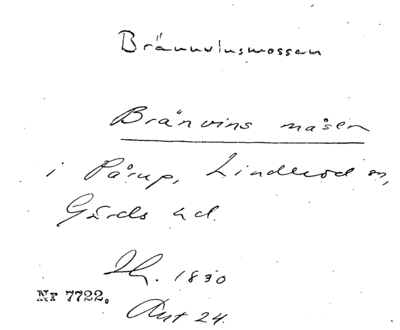 Brännvinsmossen
Bränvins måsen
i Pårup, Linderöd sn,
Gärds hd.
1830
Nr 7722.
Akt 24.